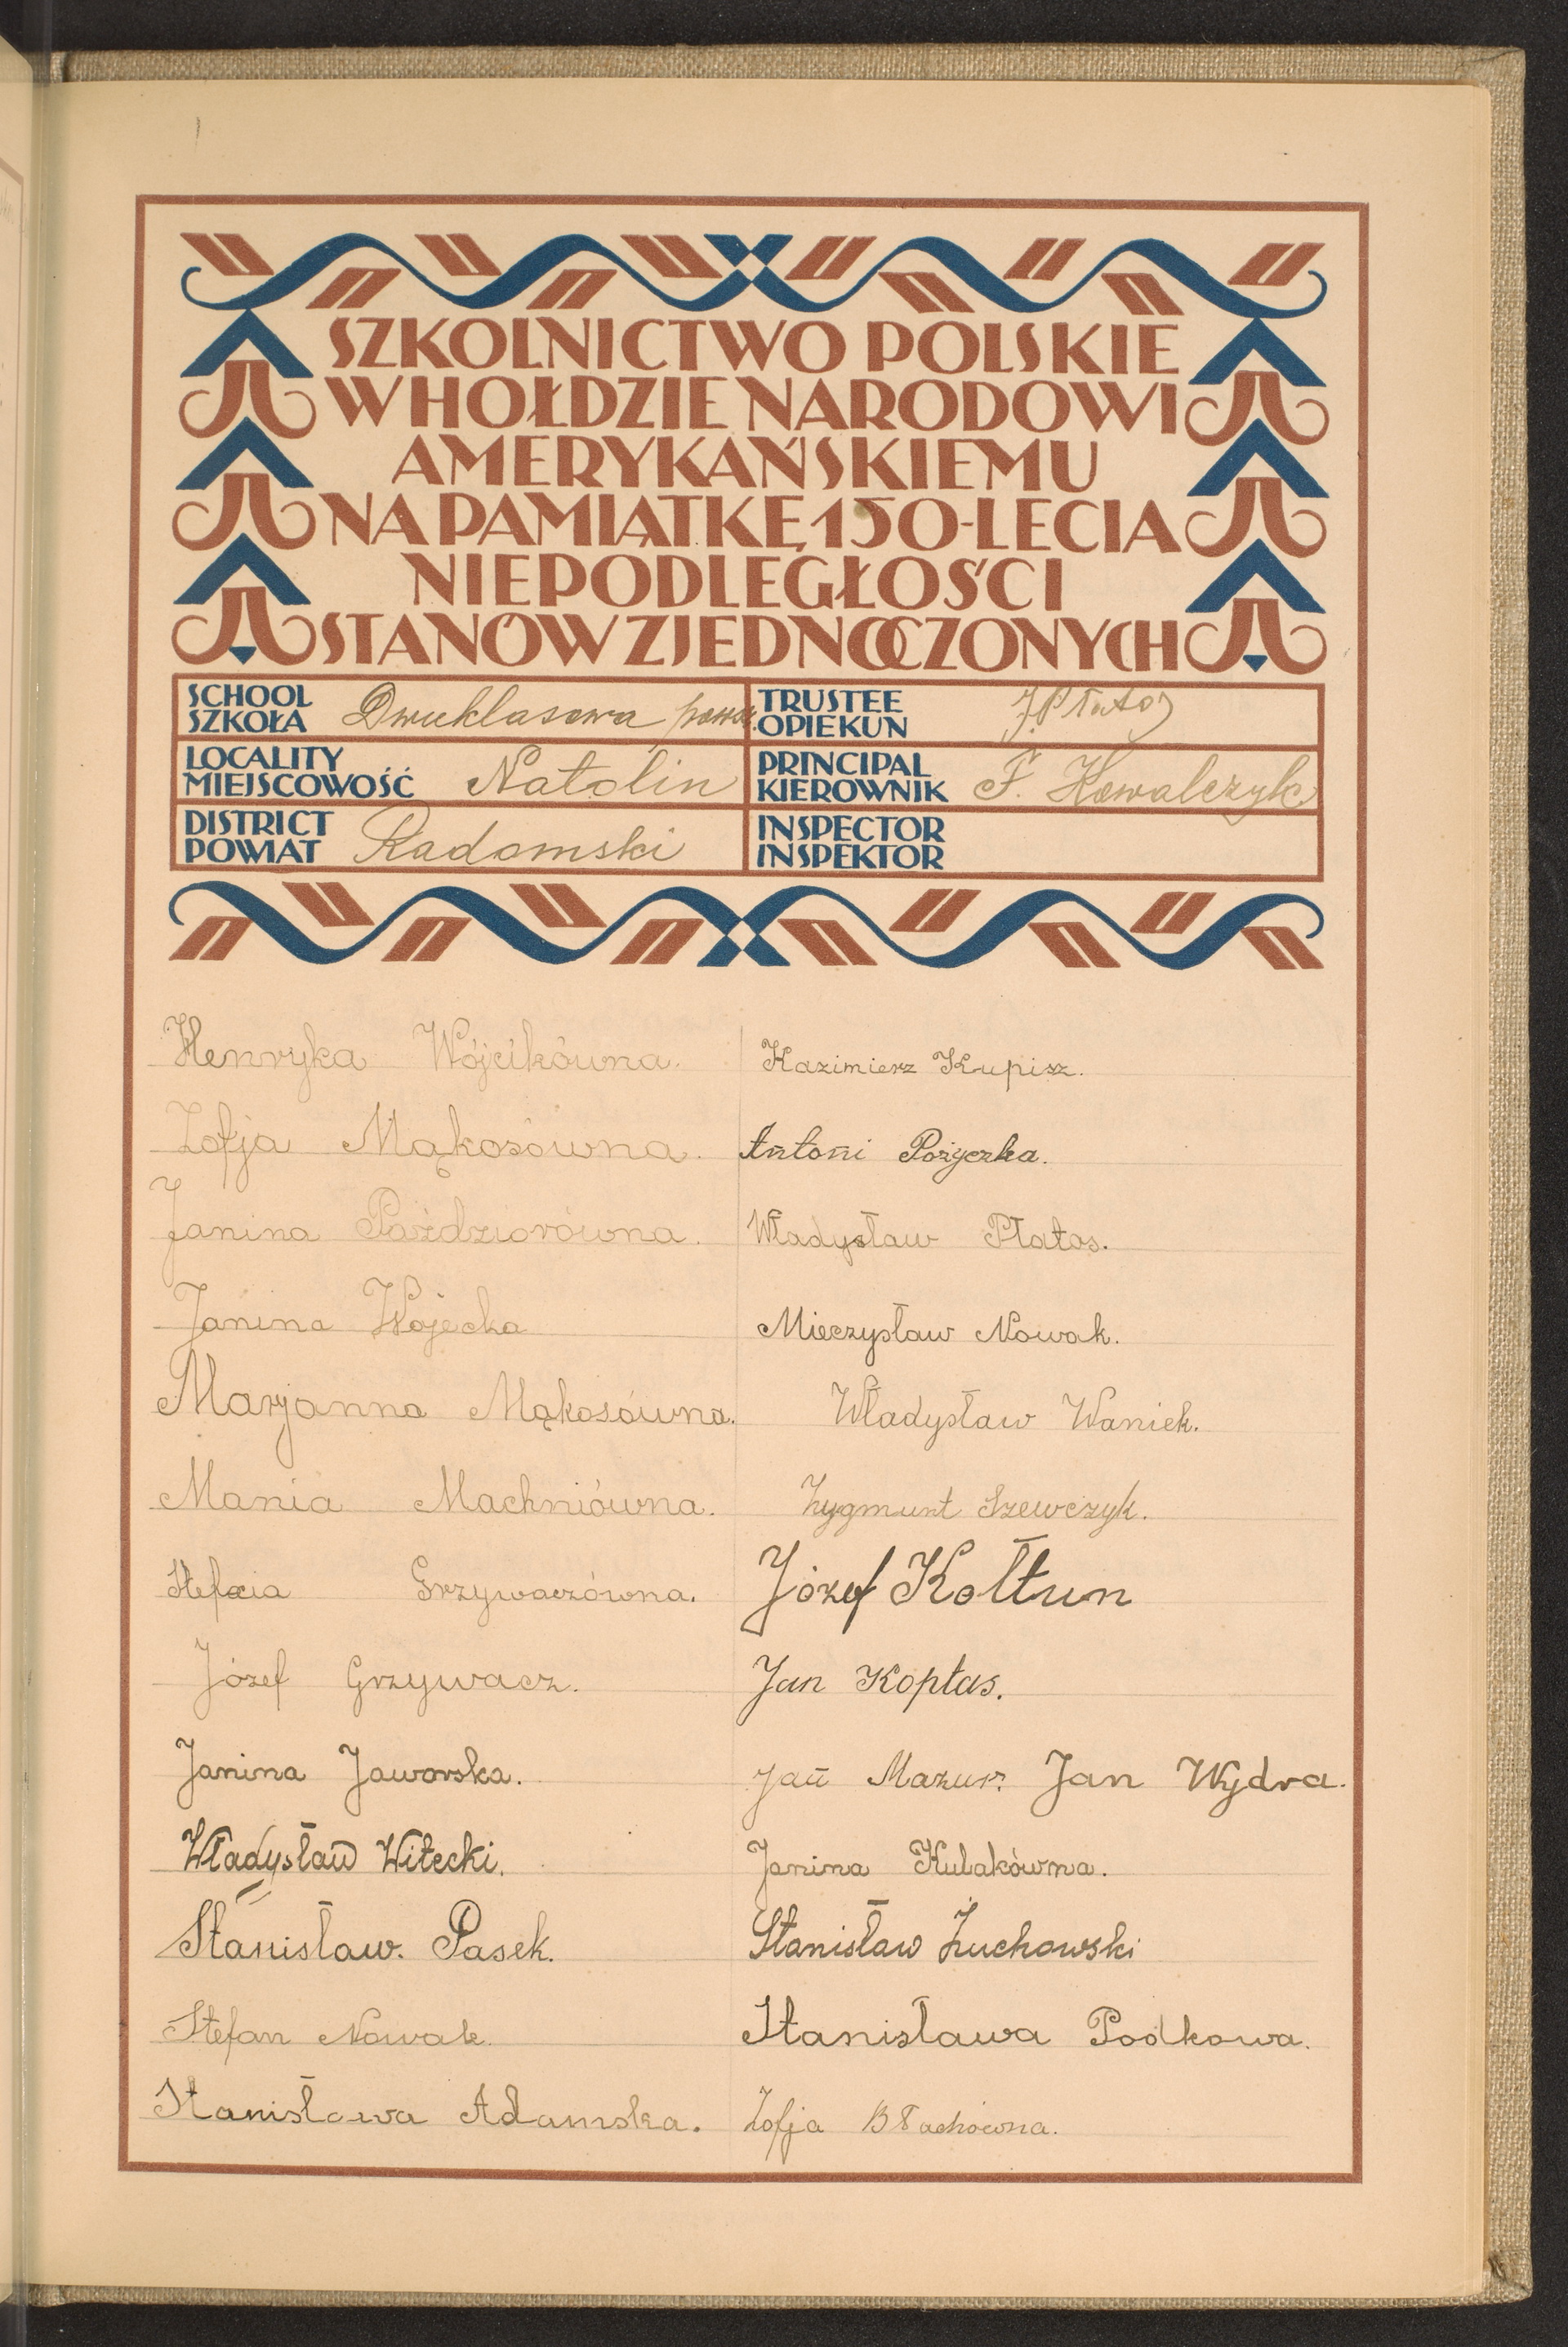 SZKOLNICTWO POLSKIE
W HOŁDZIE NARODOWI
AMERYKAŃSKIEMU
NA PAMIĄTKĘ 150-LECIA
NIEPODLEGŁOŚCI
STANÓW ZJEDNOCZONYCH
SCHOOL
SZKOŁA Dwuklasowa pow.
TRUSTEE
OPIEKUN J. Płatos
LOCALITY
MIEJSCOWOŚĆ Natolin
PRINCIPAL
KIEROWNIK F. Kowalczyk
DISTRICT
POWIAT Radomski
INSPECTOR
INSPEKTOR
Henryka Wójcikówna.
Zofja Mąkosówna.
Janina Paździorówna.
Janina Wojecka
Marjanna Mąkosówna.
Mania Machniówna.
Stefcia Grzywaczówna.
Józef Grzywacz.
Janina Jaworska.
Władysław Witecki.
Stanisław. Pasek.
Stefan Nowak.
Stanisława Adamska.
Kazimierz Kupisz.
Antoni Pożyczka.
Władysław Płatos.
Mieczysław Nowak.
Władysław Waniek.
Zygmunt Szewczyk.
Józef Kołtun
Jan Kopłas.
Jan Mazur. Jan Wydra.
Janina Kulakówna.
Stanisław Żuchowski
Stanisława Podkowa.
Zofja Błachówna.